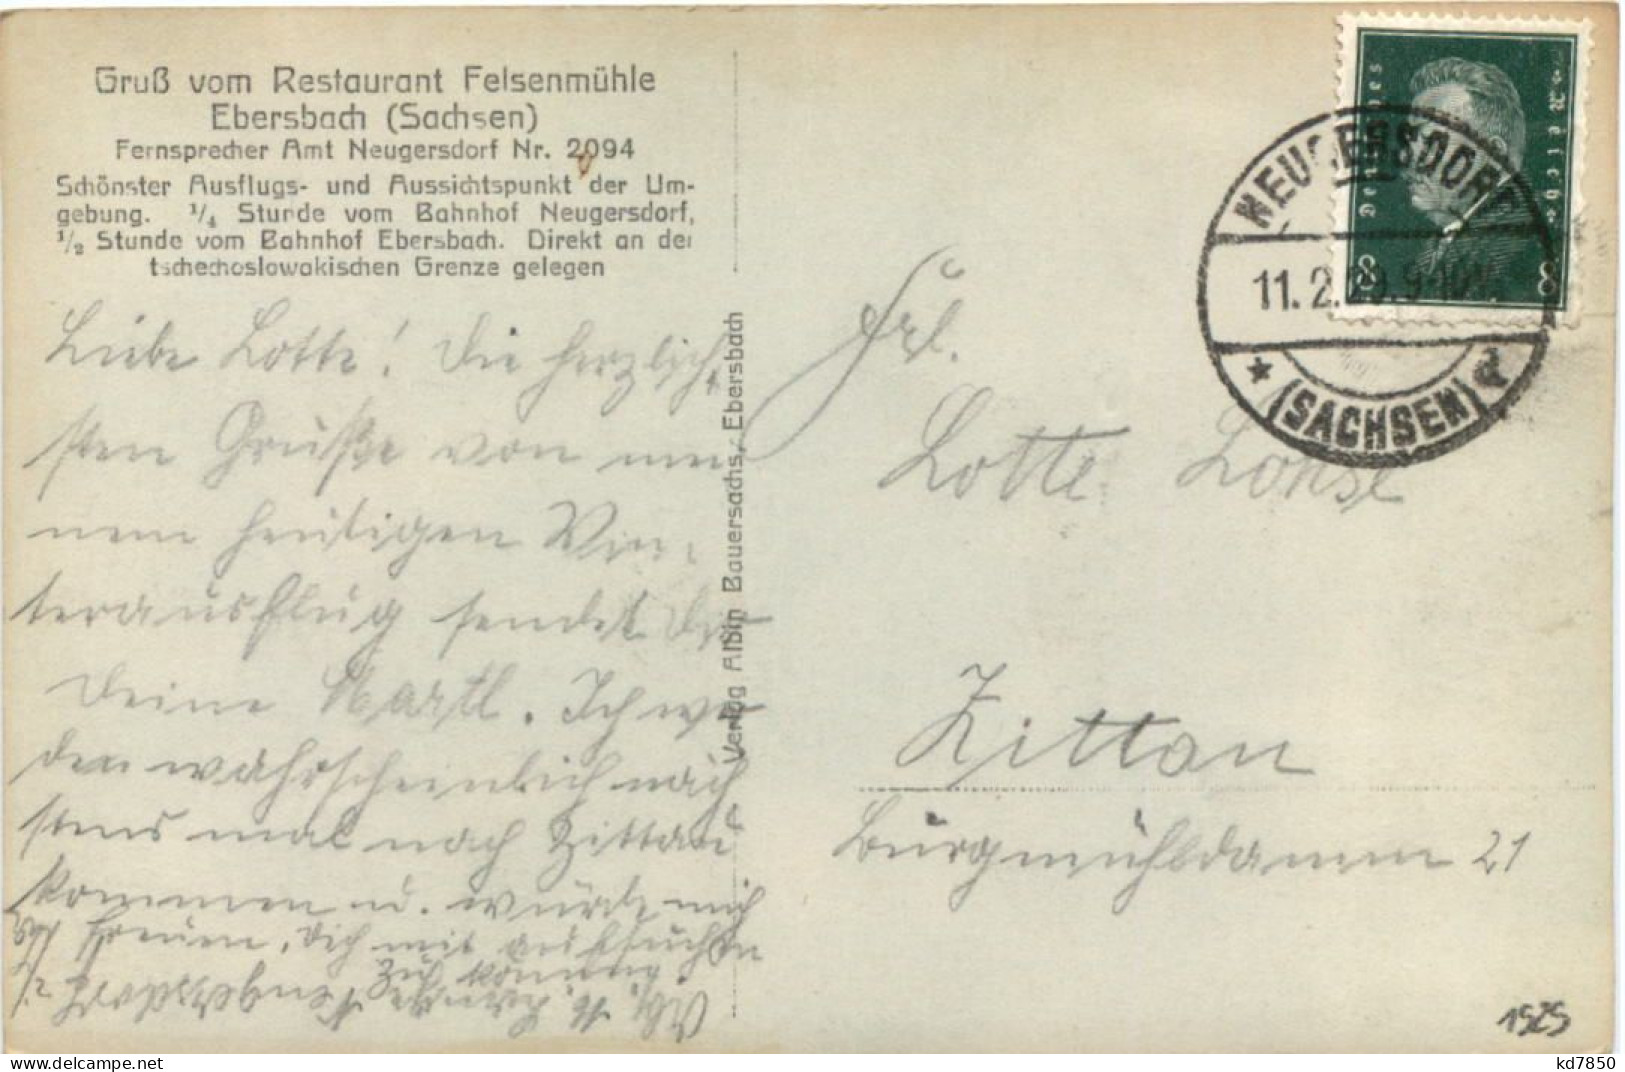 Gruß vom Restaurant Felsenmühle
Ebersbach (Sachsen)
Fernsprecher Amt Neugersdorf Nr. 2094
Schönster Ausflugs- und Aussichtspunkt der Um-
gebung. 1/4 Stunde vom Bahnhof Neugersdorf,
1/2 Stunde vom Bahnhof Ebersbach. Direkt an der
tschechoslowakischen Grenze gelegen
Liebe Lotte! Die herzlich
sten Grüße von mei
nem heutigen Win-
terausflug sendet Dir
Deine Martl. Ich wer
den wahrscheinlich näch
stens mal nach Zittau
kommen u. würde mich
freuen, Dich mit aufsuchen
zu können.
Neugersdorf
Verlag Albin Bauersachs, Ebersbach
Deutsches Reich
8 8
NEUGERSDORF
11. 2. 29. 9-10
(SACHSEN)
Frl.
Lotte Lohse
Zittau
Bürgmühldamm 21
1929
kd7850